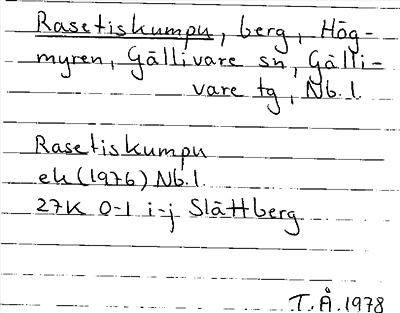 Rasetiskumpu, berg, Hög-
myren, Gällivare sn, Gälli-
vare tg, Nb.l.
Rasetiskumpu
ek (1976) Nb.l
27K 0-1 i-j Slättberg
T.Å.1978